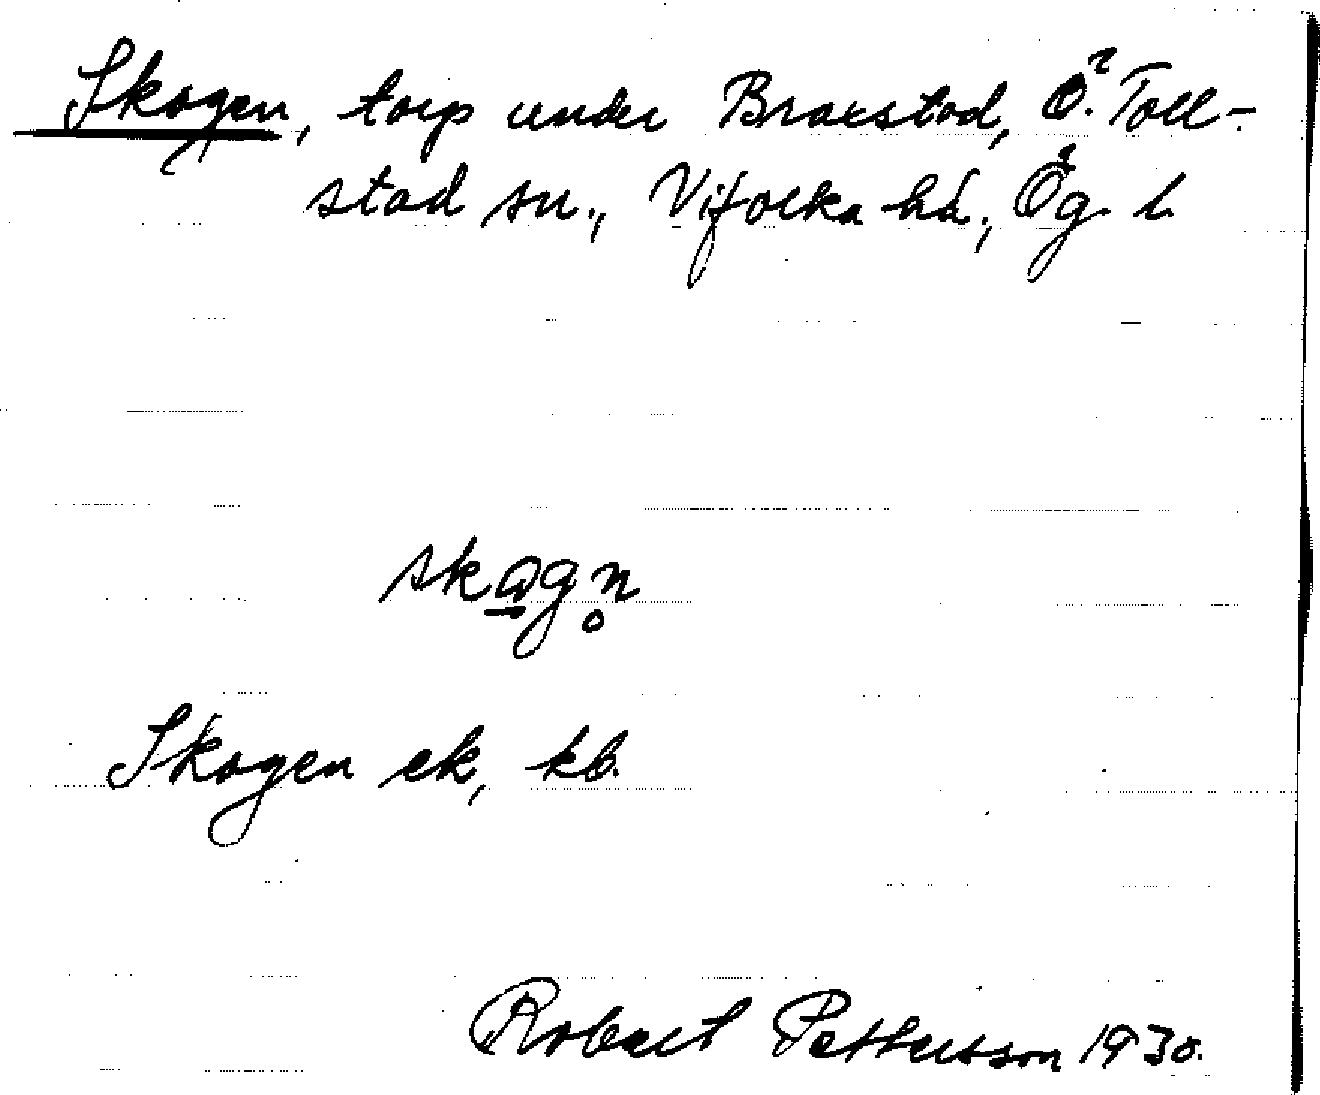 Skogen, torp under Braxstad, Ö. Toll-
stad sn., Vifolka hd., Ög. l.
skogn̥
Skogen ek, kb.
Robert Pettersson 1930.